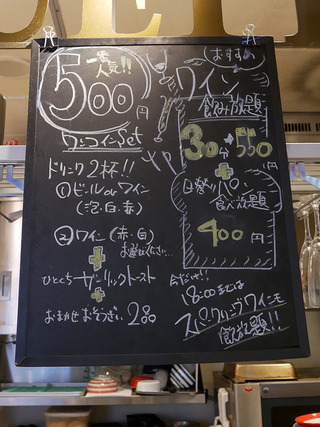 一番
人気!!
500円
ワンコインSet
ドリンク2杯!!
①ビール or ワイン
(泡・白・赤)
②ワイン (赤・白)
お選びください…
+
ひとくちガーリックトースト
+
おまかせおそうざい 2品
(おすすめ)
ワイン
飲み放題
30分→550円
+
日替りパン
食べ放題
400円
今だけ!!
18:00までは
スパークリングワインも
飲放題!!